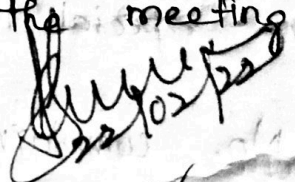 the meeting
22/02/22